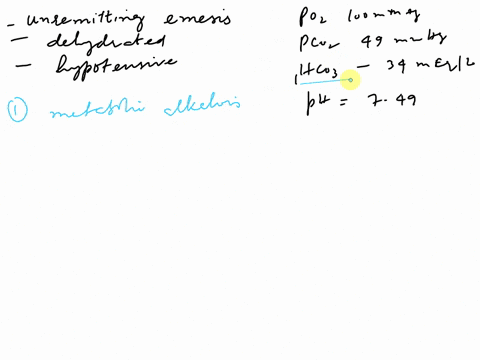 - unremitting emesis
- dehydrated
- hypotensive
① metabolic alkalosis
PO2 100mmHg
PCO2 49 mmHg
HCO3 - 34 mEq/L
pH = 7.49